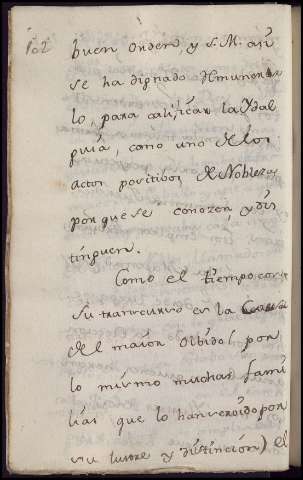 162
buen orden, y S. M. asi
se ha dignado
lo, para calificar la Ydal
guia, como uno de los
actos positibos de Nobleza
por que se conozca, y dis
tinguen.
Como el tiempo con
su transcurso es la Causa
del maior Olbido, por
lo mismo muchas fami
lias que lo han sido por
su lustre y distincion) el